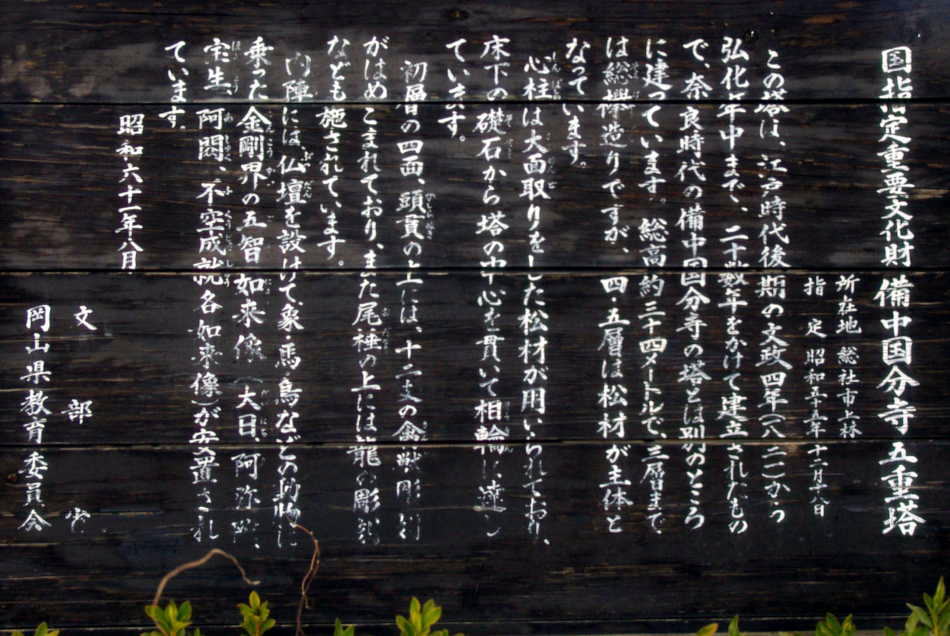 国指定重要文化財 備中国分寺五重塔
所在地 総社市上林
指定 昭和五五年十二月十八日
この塔は、江戸時代後期の文政四年(一八二一)から
弘化年中まで、二十数年をかけて建立されたもの
で、奈良時代の備中国分寺の塔とは別のところ
に建っています。総高約三十四メートルで、三層まで
は総欅造りですが、四・五層は松材が主体と
なっています。
心柱は大面取りをした松材が用いられており、
床下の礎石から塔の中心を貫いて相輪に達し
ています。
初層の四面、頭貫の上には、十二支の禽獣彫刻
がはめこまれており、また尾棰の上には龍の彫刻
なども施されています。
内陣には、仏壇を設けて、象・馬・鳥などの動物に
乗った金剛界の五智如来像(大日、阿弥陀、
宝生、阿閦、不空成就各如来像)が安置され
ています。
昭和六十一年八月
文部省
岡山県教育委員会